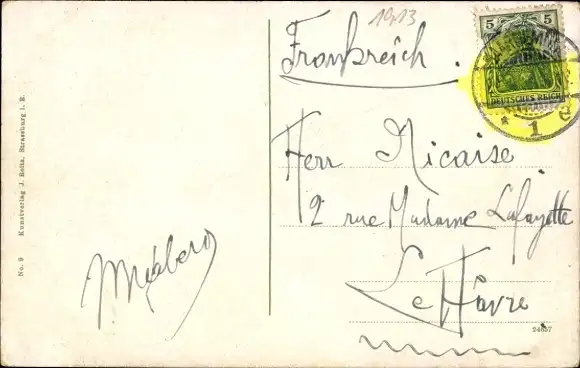 1913
Frankreich.
5 5
DEUTSCHES REICH
* 1 e
Herr Nicaise
2 rue Madame Lafayette
Le Hâvre
24657
No. 9 Kunstverlag J. Boltz, Strassburg i. E.